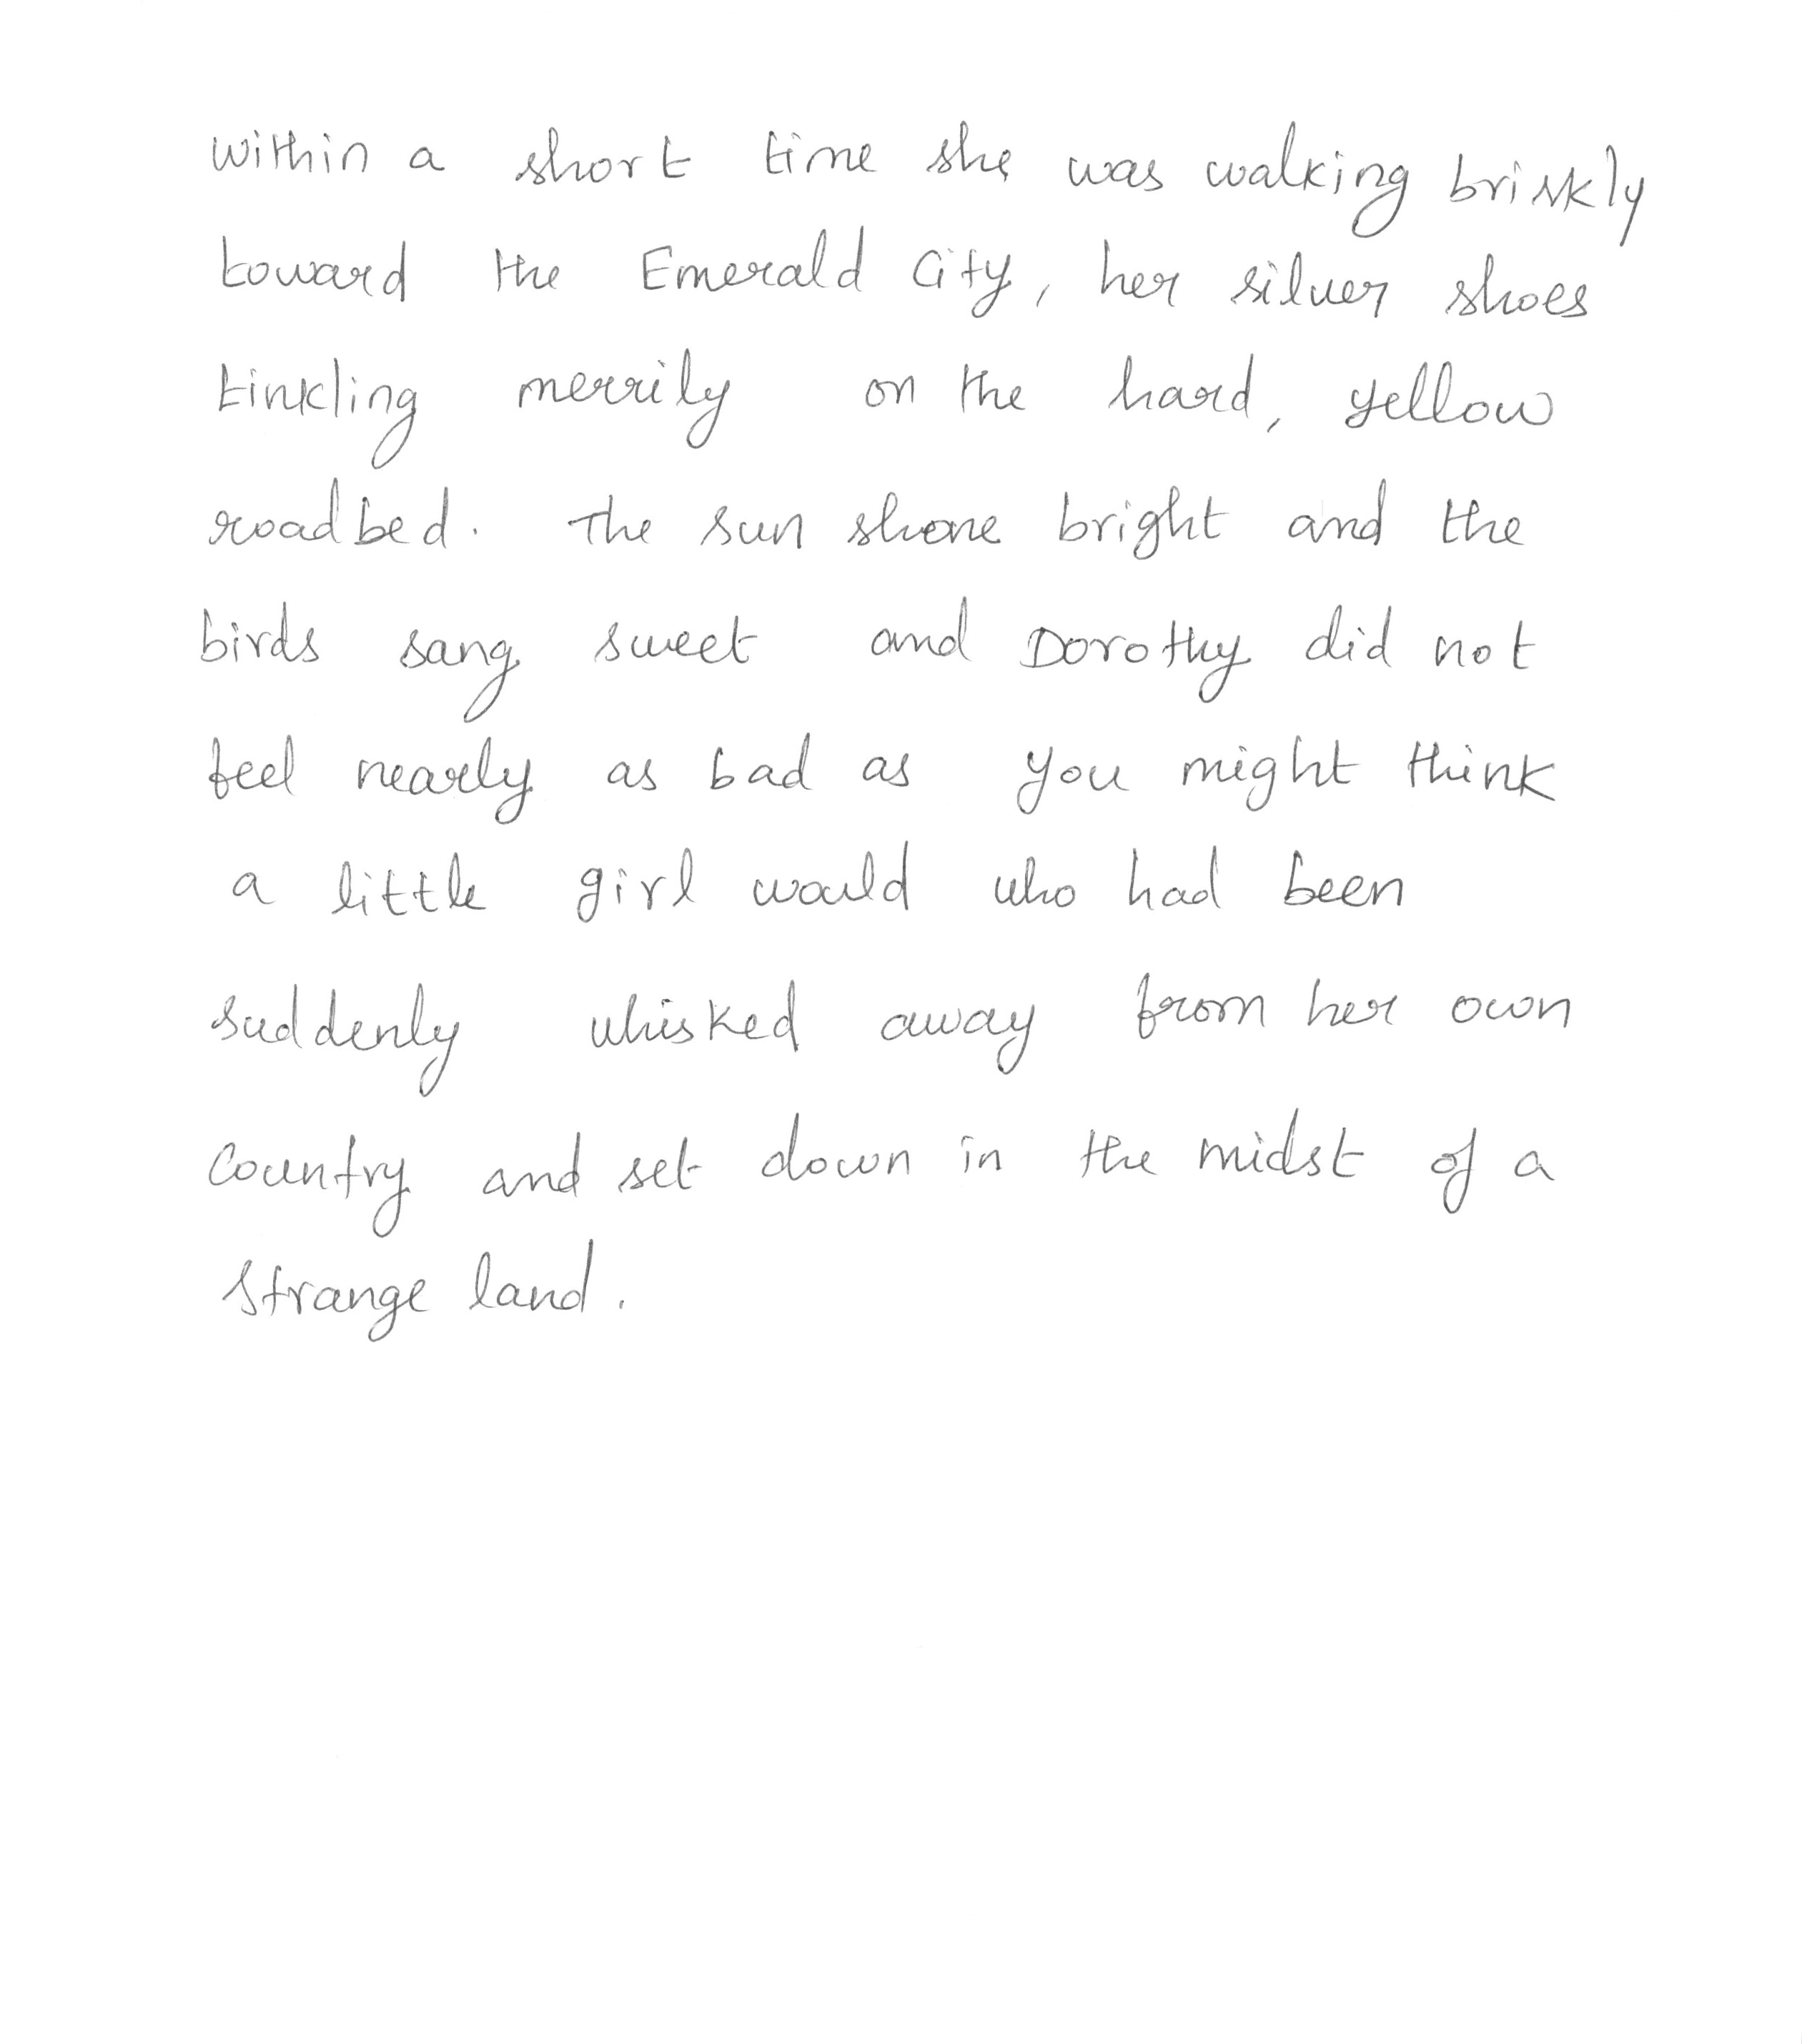 within a short time she was walking briskly
toward the Emerald City, her silver shoes
tinkling merrily on the hard, yellow
roadbed. The sun shone bright and the
birds sang sweet and Dorothy did not
feel nearly as bad as you might think
a little girl would who had been
suddenly whisked away from her own
country and set down in the midst of a
strange land.